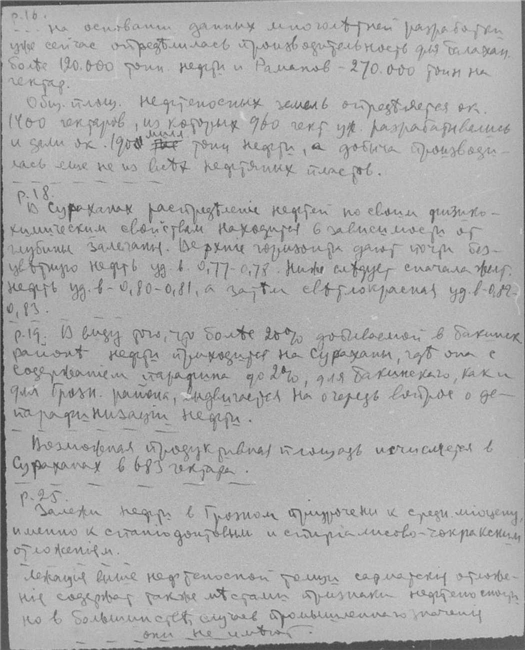 р.16.
... на основании данных многолѣтней разработки
уже сейчас опредѣлилась производительность для Балахан.
болѣе 120.000 тонн. нефти и Раманов - 270.000 тонн на
гектар.
Общ. площ. нефтеносных земель опредѣляется ок.
1400 гектаров, из которых 960 гект уж. разрабатывались
и дали ок. 190 милл тонн нефти, а добыча производи-
лась еще не из всѣх нефтяных пластов.
р.18.
В Сураханах распредѣленіе нефтей по своим физико-
химическим свойствам находится в зависимости от
глубины залегания. Верхние горизонты дают почти без-
цвѣтную нефть уд. в. 0,77-0,78. Ниже слѣдует сначала желт.
нефть уд. в - 0,80-0,81, а затѣм свѣтлокрасная уд. в - 0,82-
0,83.
р.19. В виду того, что болѣе 20% добываемой в бакинск.
районѣ нефти приходится на Сураханы, где она с
содержанием парафина до 2%, для бакинскаго, как и
для Грозн. района, выдвигается на очередь вопрос о де-
парафинизации нефти.
Возможная продуктивная площадь исчисляется в
Сураханах в 683 гектара.
р.25.
Залежи нефти в Грозном приурочены к средн. міоцену,
именно к спаніодонтовым и спириалисово-чокракским
отложеніям.
Лежащіе выше нефтеносной толщи сарматскія отложе-
нія содержат также мѣстами признаки нефтеносности
но в большинствѣ случаев промышленнаго значенія
они не имѣют.